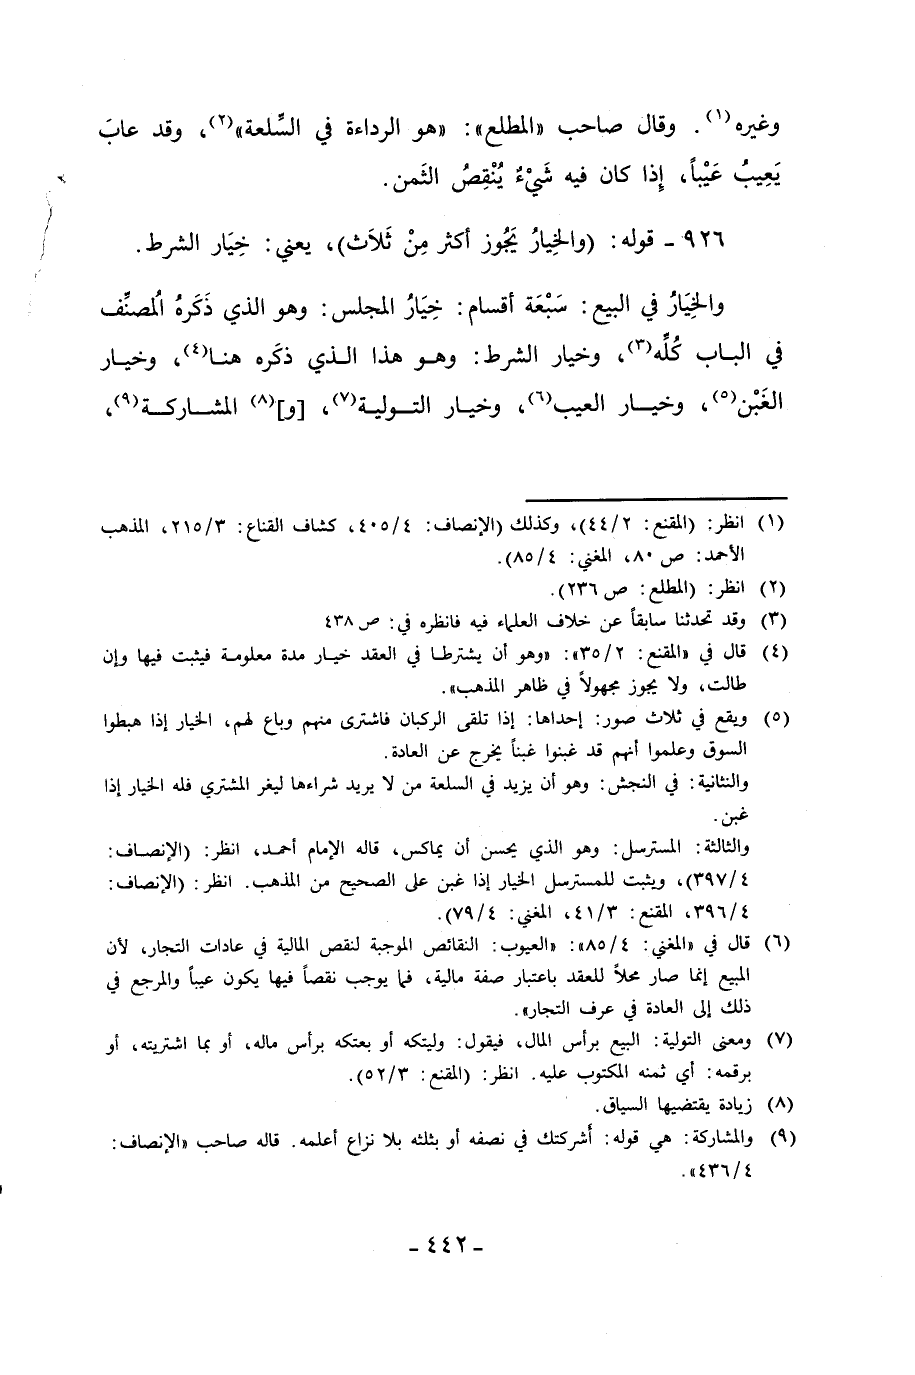 وغيره(١). وقال صاحب «المطلع»: «هو الرداءة في السِّلعة»(٢)، وقد عابَ
يَعِيبُ عَيْباً، إِذا كان فيه شَيْءٌ يُنْقِصُ الثَمن.
٩٢٦ - قوله: (والخِيارُ يَجُوز أكثر مِنْ ثَلاَث)، يعني: خِيَار الشرط.
والخِيَارُ في البيع: سَبْعَة أقسام: خِيَارُ المجلس: وهو الذي ذَكَرهُ المُصنِّف
في الباب كُلِّه(٣)، وخيار الشرط: وهو هذا الذي ذكَره هنا(٤)، وخيار
الغَبْن(٥)، وخيار العيب(٦)، وخيار التولية(٧)، [و](٨) المشاركة(٩)،
(١) انظر: (المقنع: ٤٤/٢)، وكذلك (الإنصاف: ٤٠٥/٤، كشاف القناع: ٢١٥/٣، المذهب
الأحمد: ص ٨٠، المغني: ٨٥/٤).
(٢) انظر: (المطلع: ص ٢٣٦).
(٣) وقد تحدثنا سابقاً عن خلاف العلماء فيه فانظره في: ص ٤٣٨
(٤) قال في «المقنع: ٣٥/٢»: «وهو أن يشترطا في العقد خيار مدة معلومة فيثبت فيها وإن
طالت، ولا يجوز مجهولاً في ظاهر المذهب».
(٥) ويقع في ثلاث صور: إحداها: إذا تلقى الركبان فاشترى منهم وباع لهم، الخيار إذا هبطوا
السوق وعلموا أنهم قد غبنوا غبناً يخرج عن العادة.
والثانية: في النجش: وهو أن يزيد في السلعة من لا يريد شراءها ليغر المشتري فله الخيار إذا
غبن.
والثالثة: المسترسل: وهو الذي يحسن أن يماكس، قاله الإمام أحمد، انظر: (الإنصاف:
٣٩٧/٤)، ويثبت للمسترسل الخيار إذا غبن على الصحيح من المذهب. انظر: (الإنصاف:
٣٩٦/٤، المقنع: ٤١/٣، المغني: ٧٩/٤).
(٦) قال في «المغني: ٨٥/٤»: «العيوب: النقائص الموجبة لنقص المالية في عادات التجار، لأن
المبيع إنما صار محلاً للعقد باعتبار صفة مالية، فما يوجب نقصاً فيها يكون عيباً والمرجع في
ذلك إلى العادة في عرف التجار».
(٧) ومعنى التولية: البيع برأس المال، فيقول: وليتكه أو بعتكه برأس ماله، أو بما اشتريته، أو
برقمه: أي ثمنه المكتوب عليه. انظر: (المقنع: ٥٢/٣).
(٨) زيادة يقتضيها السياق.
(٩) والمشاركة: هي قوله: أشركتك في نصفه أو بثلثه بلا نزاع أعلمه. قاله صاحب «الإنصاف:
٤٣٦/٤».
- ٤٤٢ -